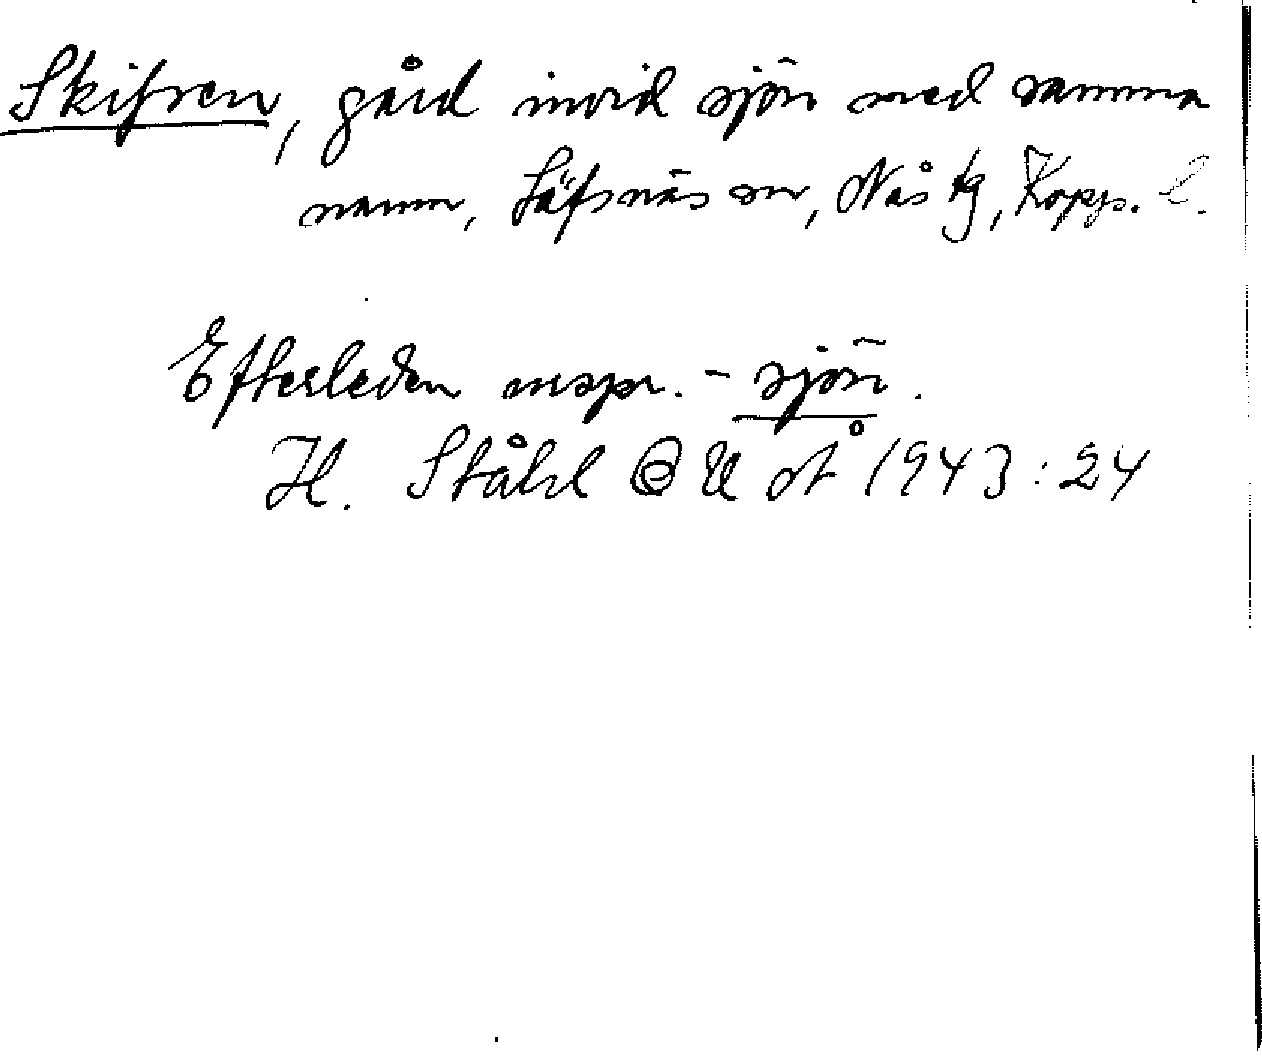 Skifsen, gård invid sjön med samma
namn, Säfsnäs sn, Nås tg, Kopps. l.
Efterleden urspr. - sjön.
H. Ståhl OUÅ 1943:24